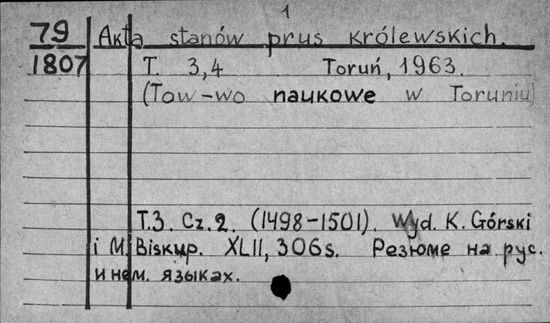 1
79 Akta stanów prus królewskich.
1807 T. 3,4 Toruń, 1963.
(Tow-wo naukowe w Toruniu)
T.3. Cz.2. (1498-1501). Wyd. K. Górski
i M. Biskup. XLII, 306s. Резюме на рус.
и нем. языках.